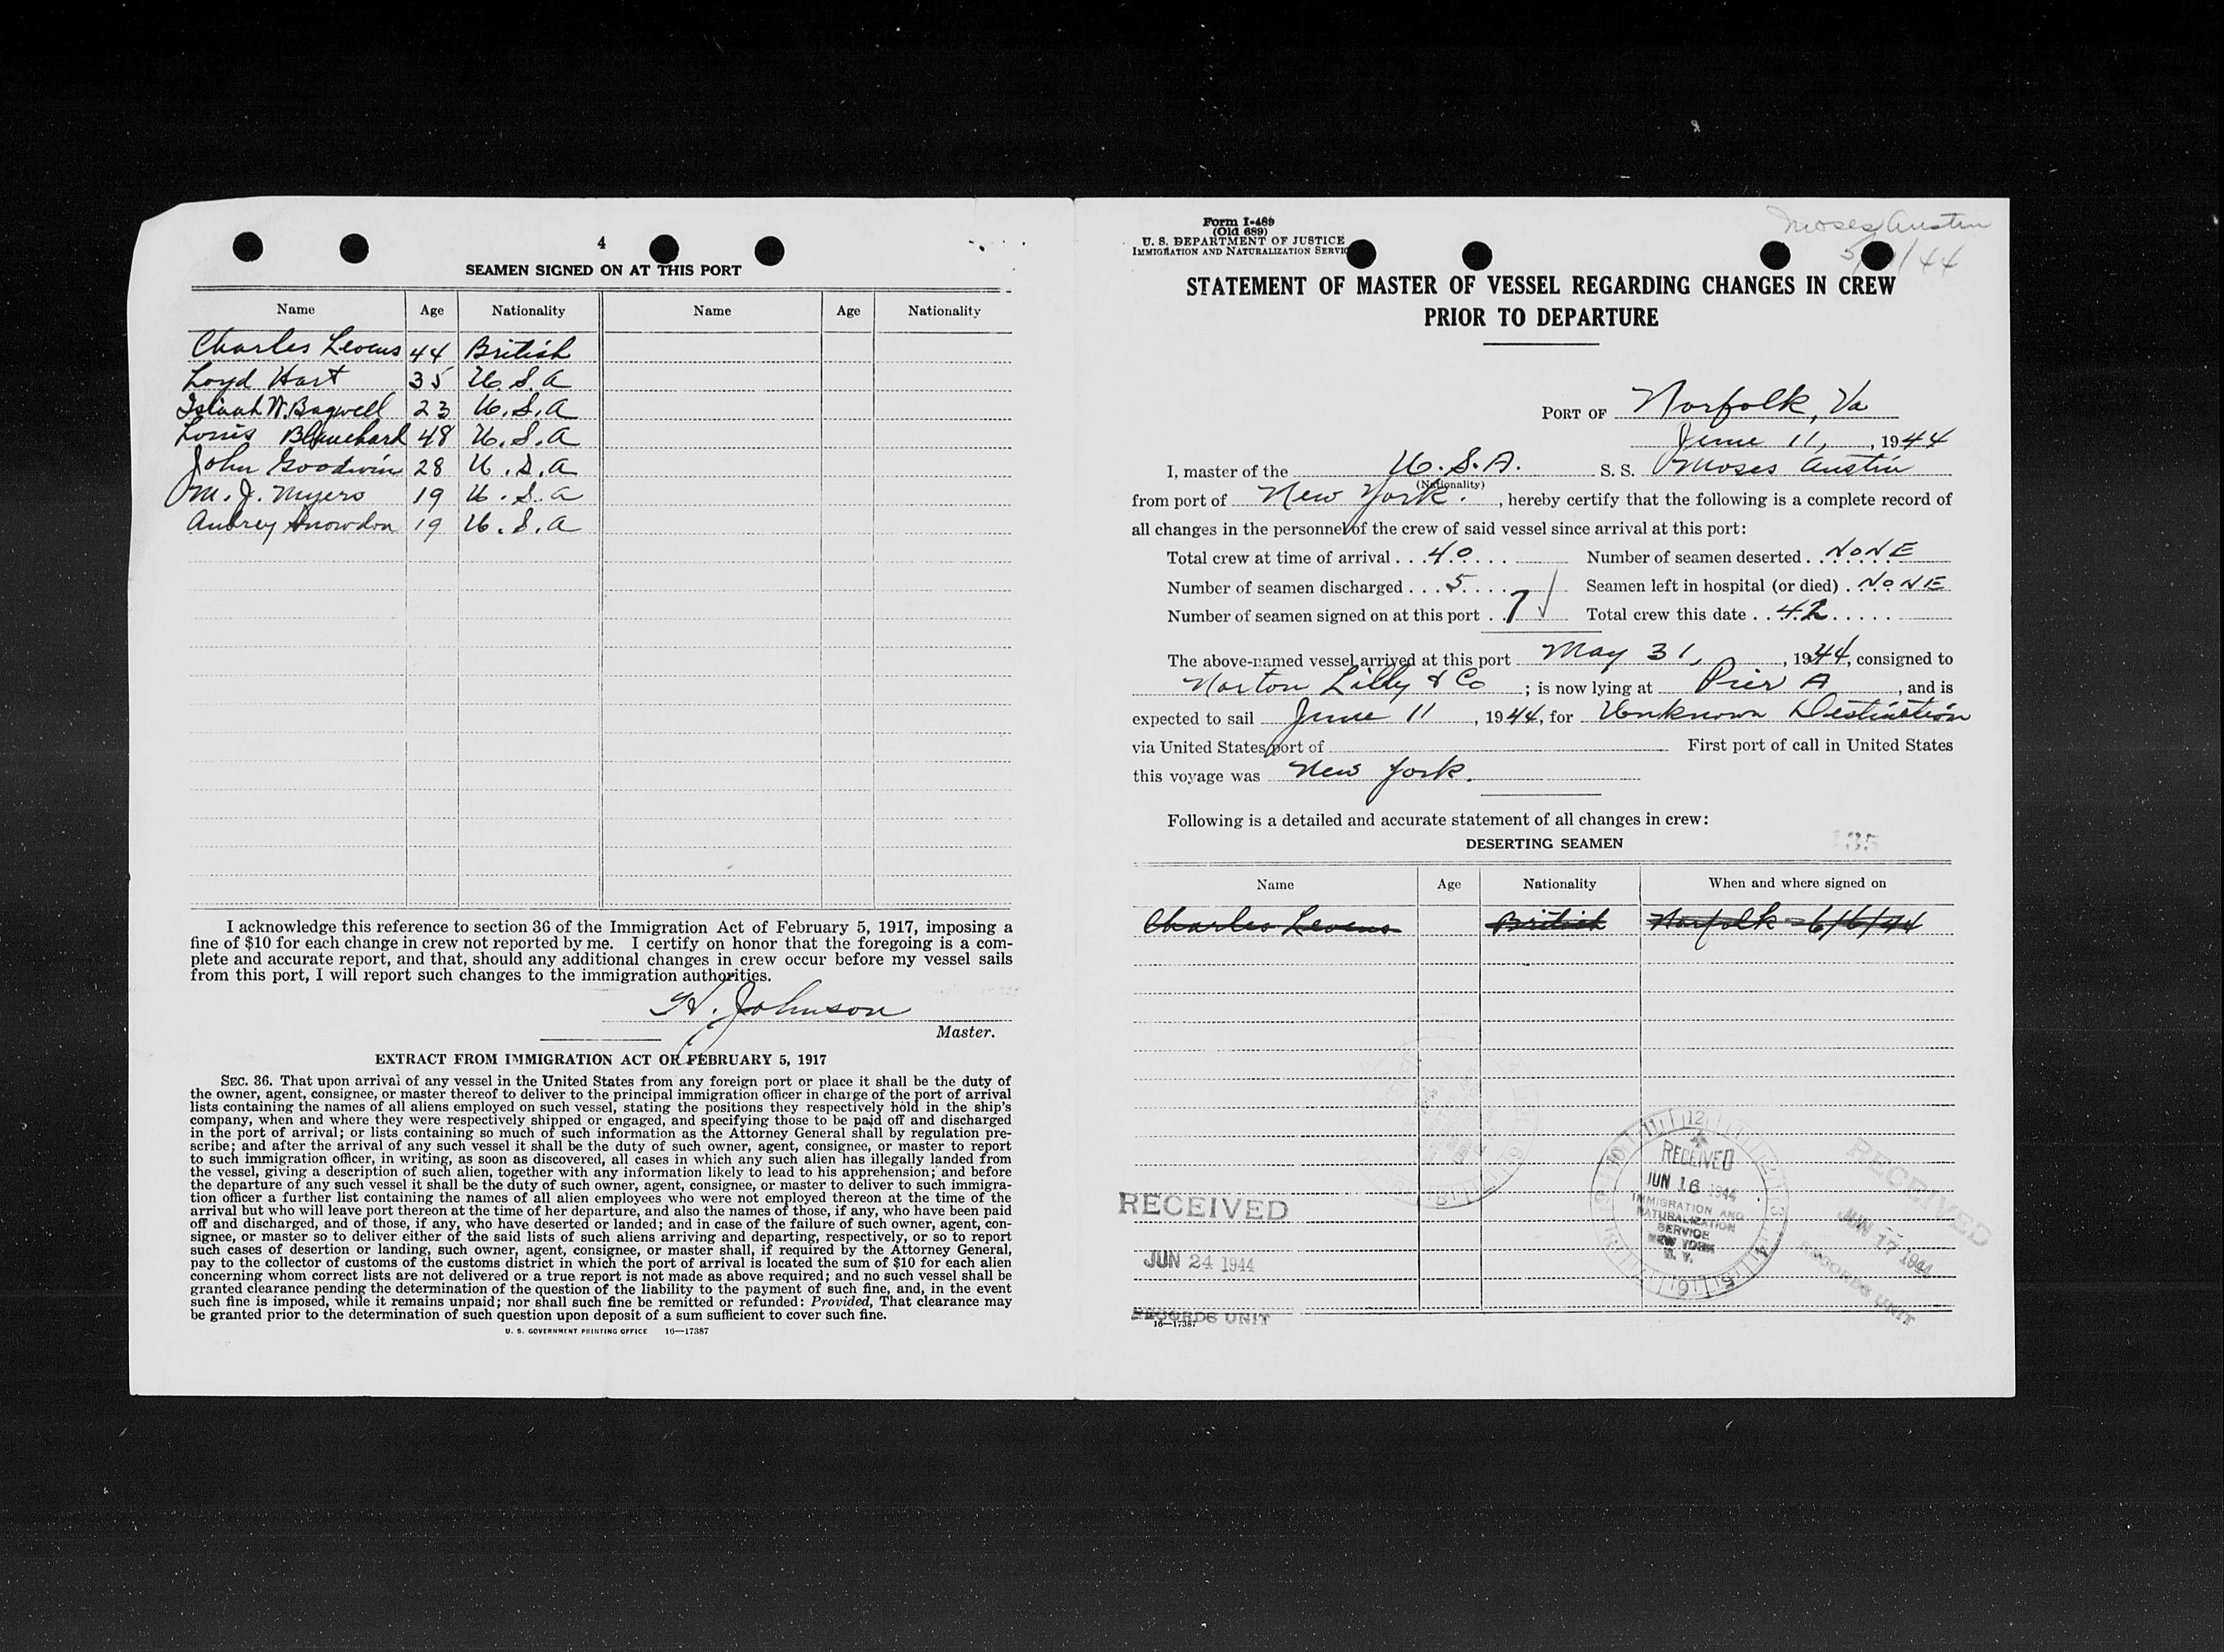 4
SEAMEN SIGNED ON AT THIS PORT
Name Age Nationality Name Age Nationality
Charles Levens 44 British
Loyd Hart 35 U.S.A
Isiaah W. Bagwell 23 U.S.A
Louis Blanchard 48 U.S.A
John Goodwin 28 U.S.A
M. J. Myers 19 U.S.A
Aubrey Snowdon 19 U.S.A
I acknowledge this reference to section 36 of the Immigration Act of February 5, 1917, imposing a
fine of $10 for each change in crew not reported by me. I certify on honor that the foregoing is a com-
plete and accurate report, and that, should any additional changes in crew occur before my vessel sails
from this port, I will report such changes to the immigration authorities.
H. Johnson
Master.
EXTRACT FROM IMMIGRATION ACT OF FEBRUARY 5, 1917
SEC. 36. That upon arrival of any vessel in the United States from any foreign port or place it shall be the duty of
the owner, agent, consignee, or master thereof to deliver to the principal immigration officer in charge of the port of arrival
lists containing the names of all aliens employed on such vessel, stating the positions they respectively hold in the ship's
company, when and where they were respectively shipped or engaged, and specifying those to be paid off and discharged
in the port of arrival; or lists containing so much of such information as the Attorney General shall by regulation pre-
scribe; and after the arrival of any such vessel it shall be the duty of such owner, agent, consignee, or master to report
to such immigration officer, in writing, as soon as discovered, all cases in which any such alien has illegally landed from
the vessel, giving a description of such alien, together with any information likely to lead to his apprehension; and before
the departure of any such vessel it shall be the duty of such owner, agent, consignee, or master to deliver to such immigra-
tion officer a further list containing the names of all alien employees who were not employed thereon at the time of the
arrival but who will leave port thereon at the time of her departure, and also the names of those, if any, who have been paid
off and discharged, and of those, if any, who have deserted or landed; and in case of the failure of such owner, agent, con-
signee, or master so to deliver either of the said lists of such aliens arriving and departing, respectively, or so to report
such cases of desertion or landing, such owner, agent, consignee, or master shall, if required by the Attorney General,
pay to the collector of customs of the customs district in which the port of arrival is located the sum of $10 for each alien
concerning whom correct lists are not delivered or a true report is not made as above required; and no such vessel shall be
granted clearance pending the determination of the question of the liability to the payment of such fine, and, in the event
such fine is imposed, while it remains unpaid; nor shall such fine be remitted or refunded: Provided, That clearance may
be granted prior to the determination of such question upon deposit of a sum sufficient to cover such fine.
U. S. GOVERNMENT PRINTING OFFICE 16—17387
Form I-489
(Old 689)
U. S. DEPARTMENT OF JUSTICE
IMMIGRATION AND NATURALIZATION SERVIC
Moses Austin
/44
STATEMENT OF MASTER OF VESSEL REGARDING CHANGES IN CREW
PRIOR TO DEPARTURE
PORT OF Norfolk, Va
June 11, , 1944
I, master of the U.S.A. S. S. Moses Austin
(Nationality)
from port of New York. , hereby certify that the following is a complete record of
all changes in the personnel of the crew of said vessel since arrival at this port:
Total crew at time of arrival . . . 40 . . . . Number of seamen deserted . NONE
Number of seamen discharged . . . 5 . . . . Seamen left in hospital (or died) . NONE
Number of seamen signed on at this port . . 7 √ Total crew this date . . 42 . . . . .
The above-named vessel arrived at this port May 31, , 1944, consigned to
Norton Lilly & Co ; is now lying at Pier A , and is
expected to sail June 11 , 1944, for Unknown Destination
via United States port of First port of call in United States
this voyage was New York.
Following is a detailed and accurate statement of all changes in crew:
DESERTING SEAMEN
35
Name Age Nationality When and where signed on
Charles Levens British Norfolk - 6/6/44
RECEIVED
JUN 24 1944
RECORDS UNIT
16—17387
RECEIVED
JUN 16 1944
IMMIGRATION AND
NATURALIZATION
SERVICE
NEW YORK
N. Y.
RECEIVED
JUN 17 1944
RECORDS UNIT